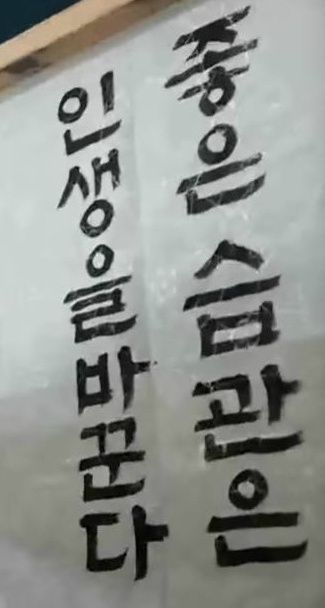 좋은 습관은
인생을 바꾼다